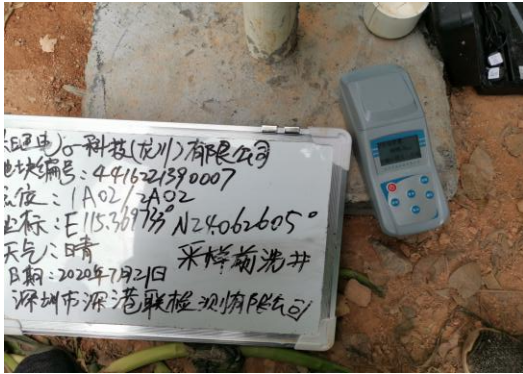 科技(龙川)有限公司
地块编号:4416221390007
点位:1A02/2A02
坐标:E115.369733° N24.062605°
天气:晴
采样前洗井
日期:2020年7月21日
深圳市深港联检测有限公司